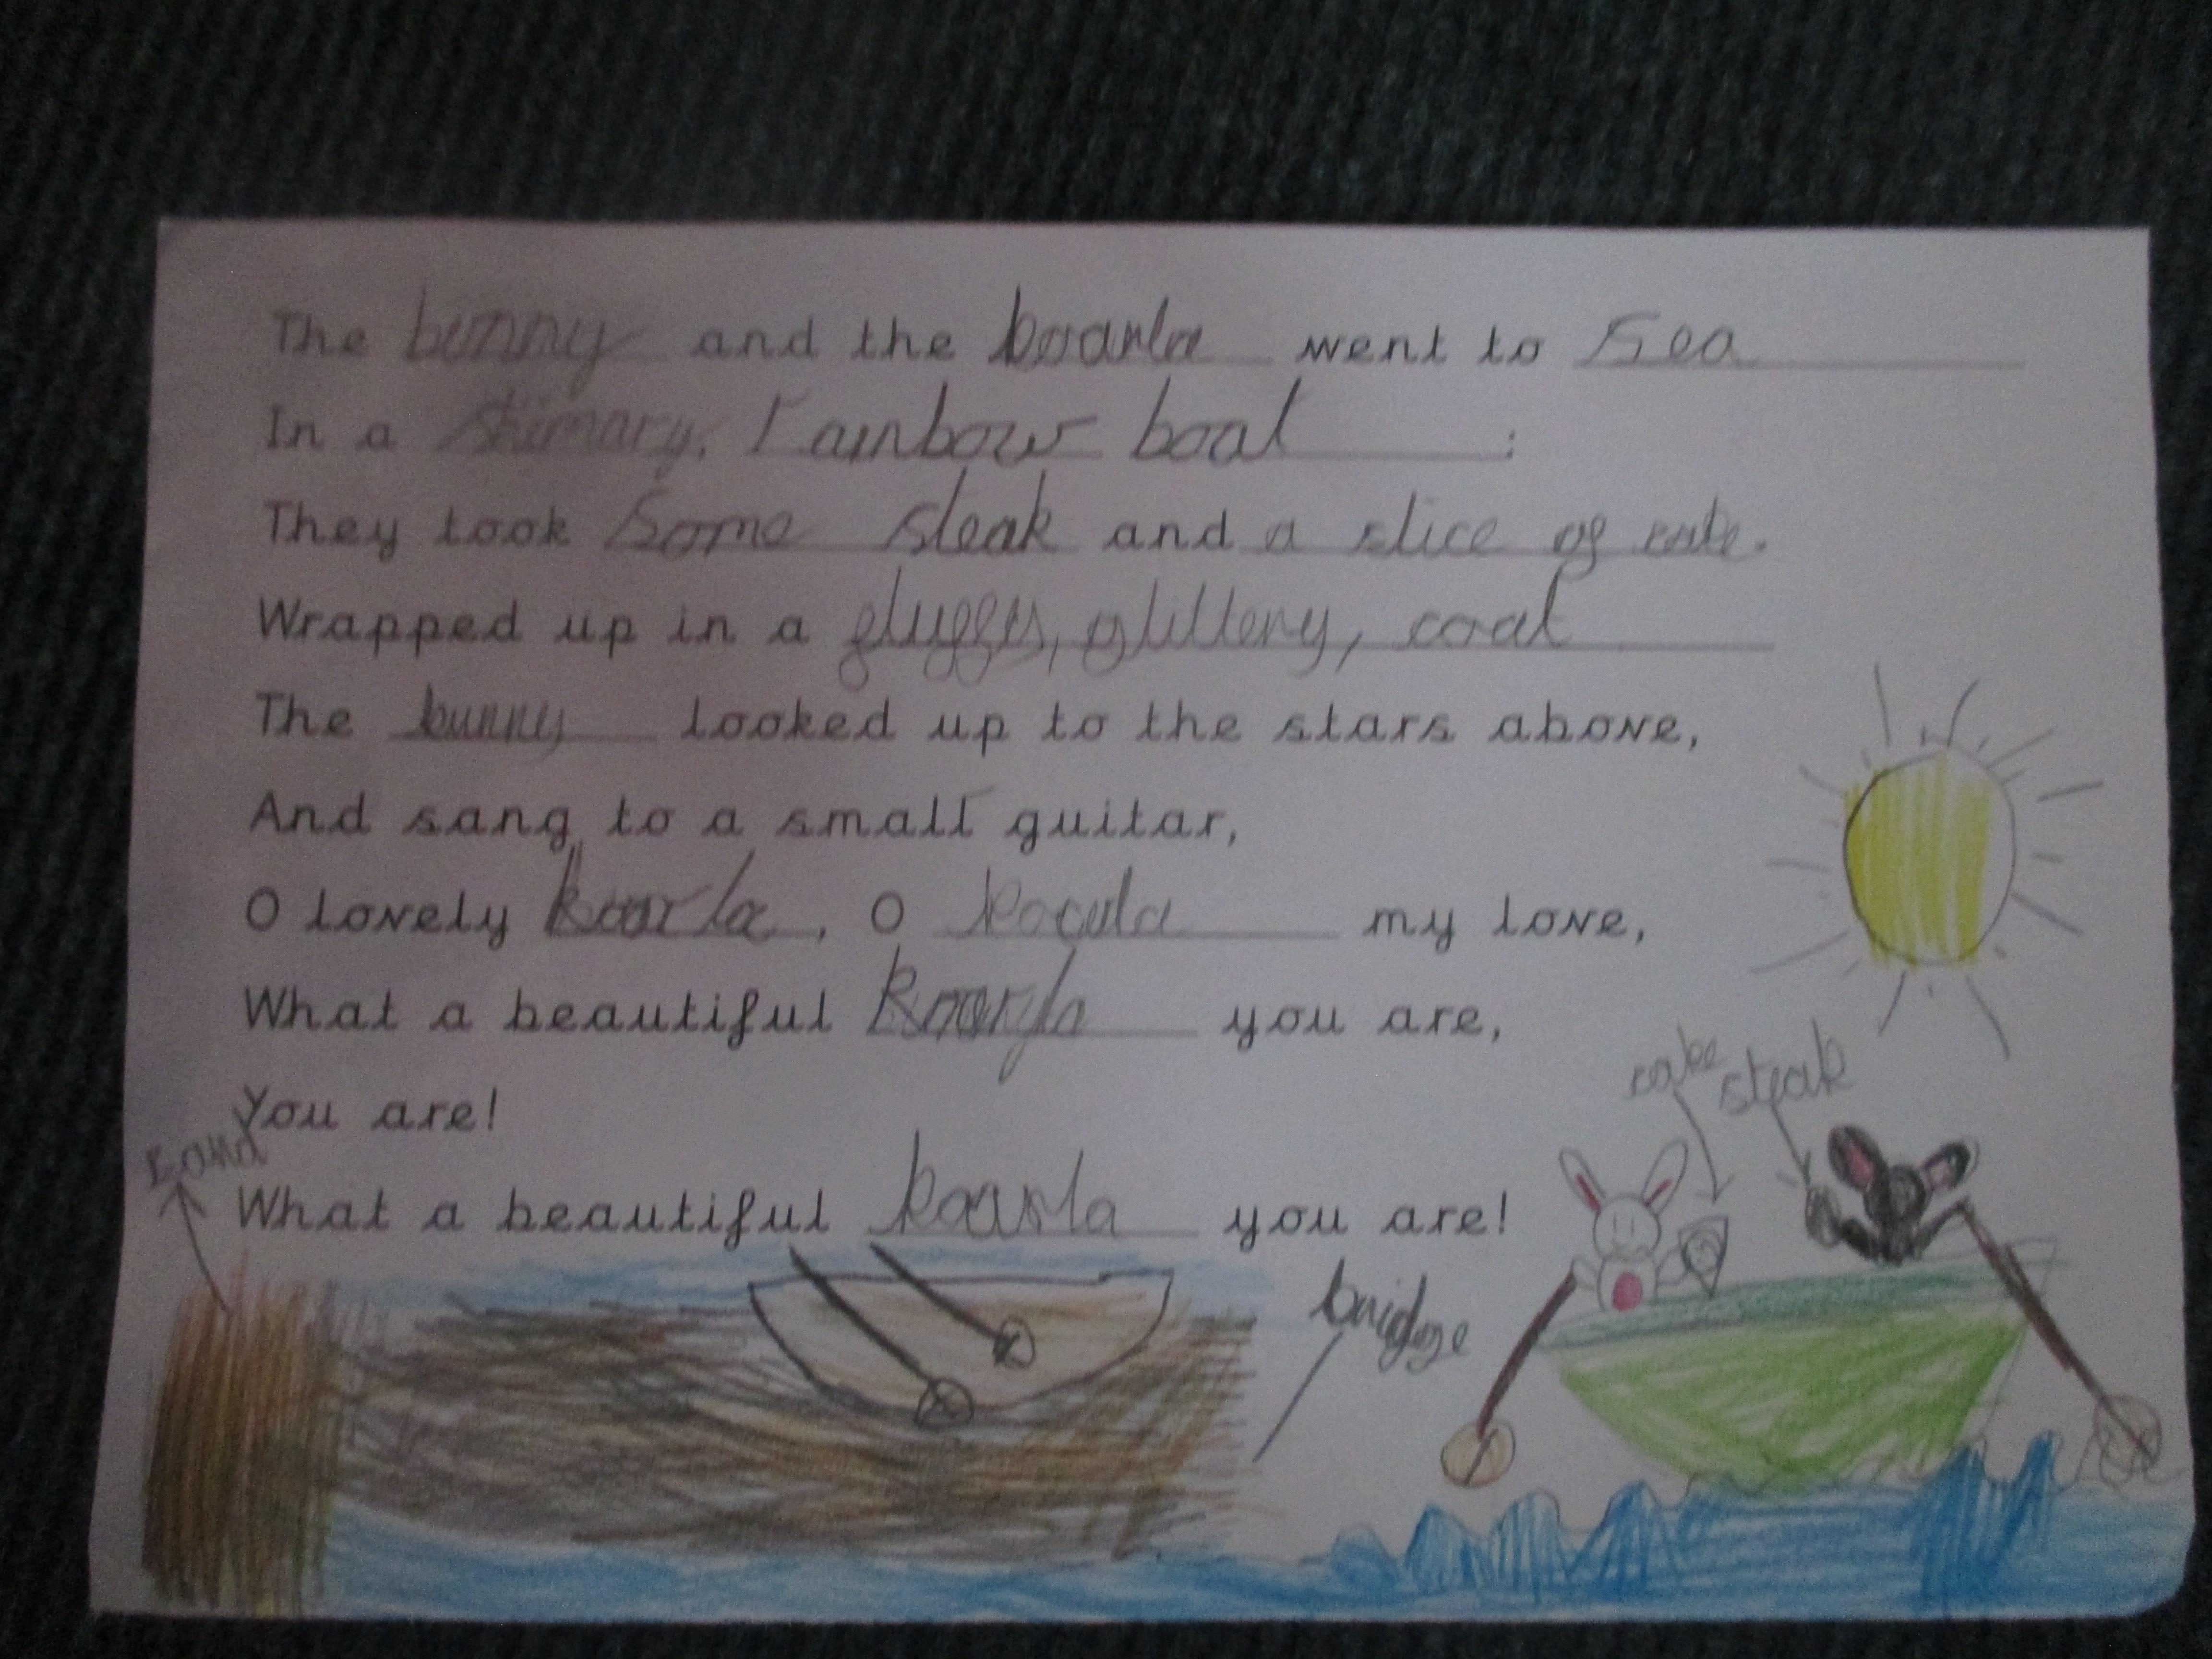 The bunny and the koarla went to sea
In a shimary, rainbow boat :
They took some steak and a slice of cake.
Wrapped up in a gluggy, glittery, coat
The bunny looked up to the stars above,
And sang to a small guitar,
O lovely koarla, O koarla my love,
What a beautiful koarla you are,
You are!
What a beautiful koarla you are!
cake
steak
Land
bridge